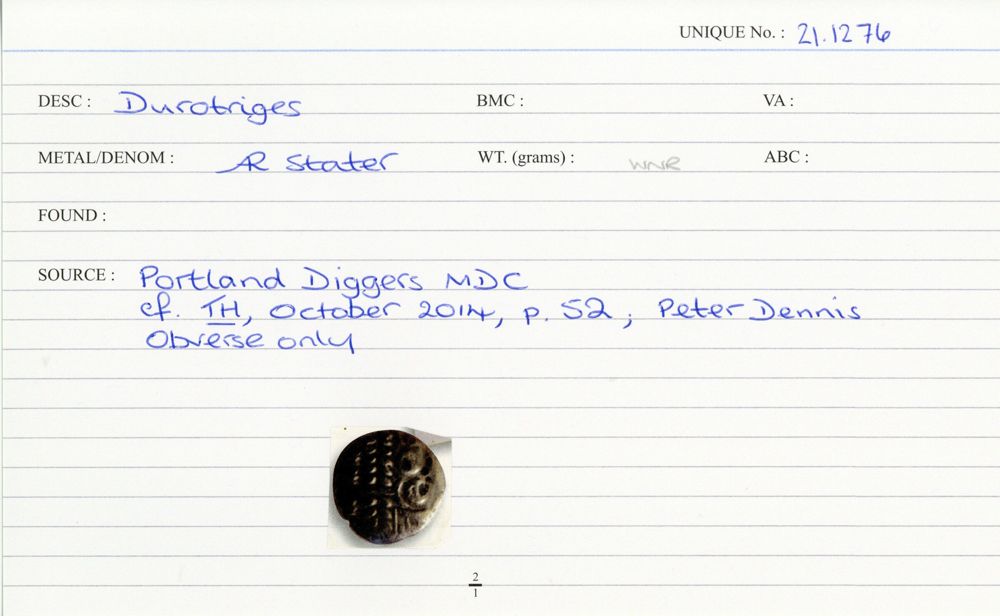 UNIQUE No. : 21.1276
DESC : Durotriges BMC : VA :
METAL/DENOM : AR Stater WT. (grams) : WNR ABC :
FOUND :
SOURCE : Portland Diggers MDC
cf. TH, October 2014, p. 52 ; Peter Dennis
Obverse only
2
1